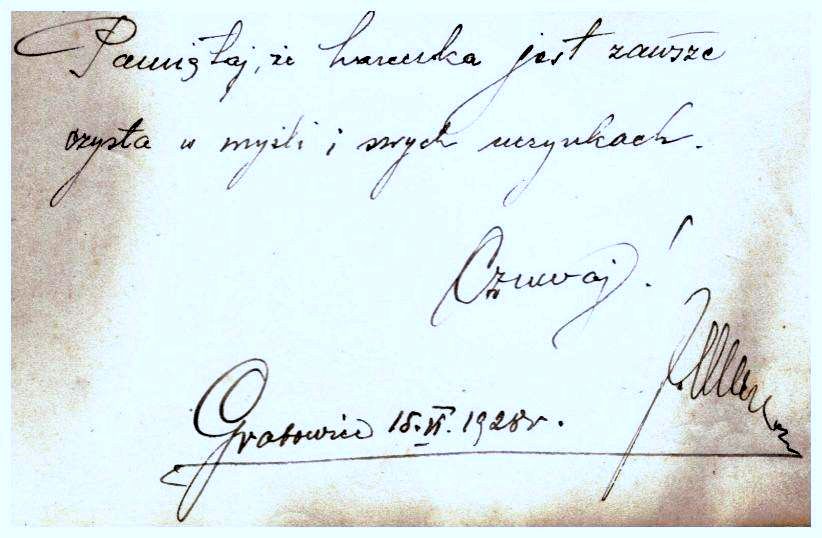 Pamiętaj, że harcerka jest zawsze
czysta w myśli i swych uczynkach.
Czuwaj!
Grabowiec 15. VI. 1928 r.